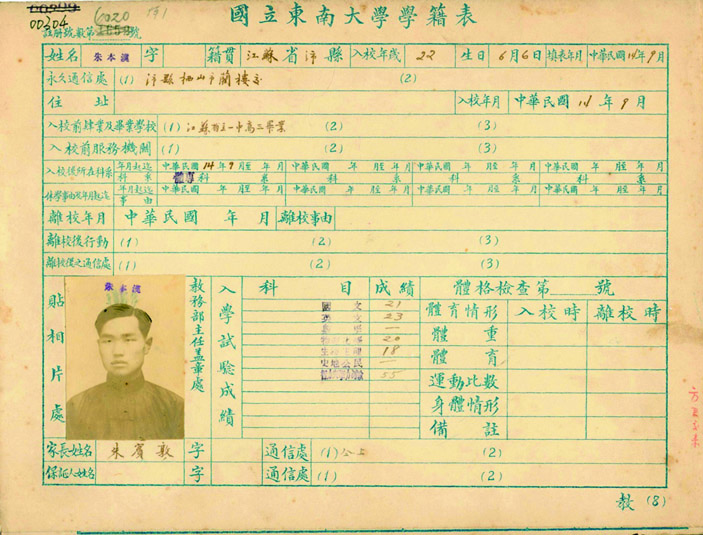 00304
6020
國立東南大學學籍表
註冊號數第 號
姓名 朱本漢 字 籍貫 江蘇省沛縣 入校年歲 22 生日 6月6日 填表年月 中華民國14年9月
永久通信處 (1) 沛縣栖山 (2)
住址 入校年月 中華民國14年9月
入校前肄業及畢業學校 (1) 江蘇 一中高 畢業 (2) (3)
入校前服務機關 (1) (2) (3)
入校後所在科系 年月起迄 中華民國14年9月至 年 月 中華民國 年 月至 年 月 中華民國 年 月至 年 月 中華民國 年 月至 年 月
科系 體專科 系 科 系 科 系 科 系
休學事由及年月起迄 年月起迄 中華民國 年 月至 年 月 中華民國 年 月至 年 月 中華民國 年 月至 年 月 中華民國 年 月至 年 月
事由
離校年月 中華民國 年 月 離校事由
離校後行動 (1) (2) (3)
離校後之通信處 (1) (2) (3)
貼相片處
朱本漢
教務部主任蓋章處
入學試驗成績
科目 成績
國文 21
23
20
18
55
體格檢查第 號
體育情形 入校時 離校時
體重
體育
運動比數
身體情形
備註
家長姓名 朱賓 字 通信處 (1) 仝上 (2)
保証人姓名 字 通信處 (1) (2)
教 (8)